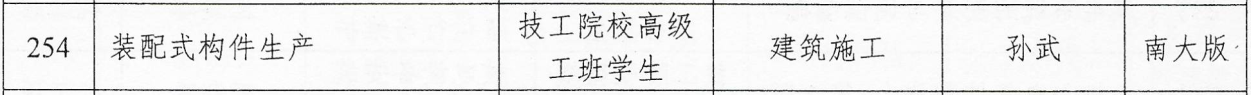 254 装配式构件生产 技工院校高级 建筑施工 孙武 南大版
工班学生